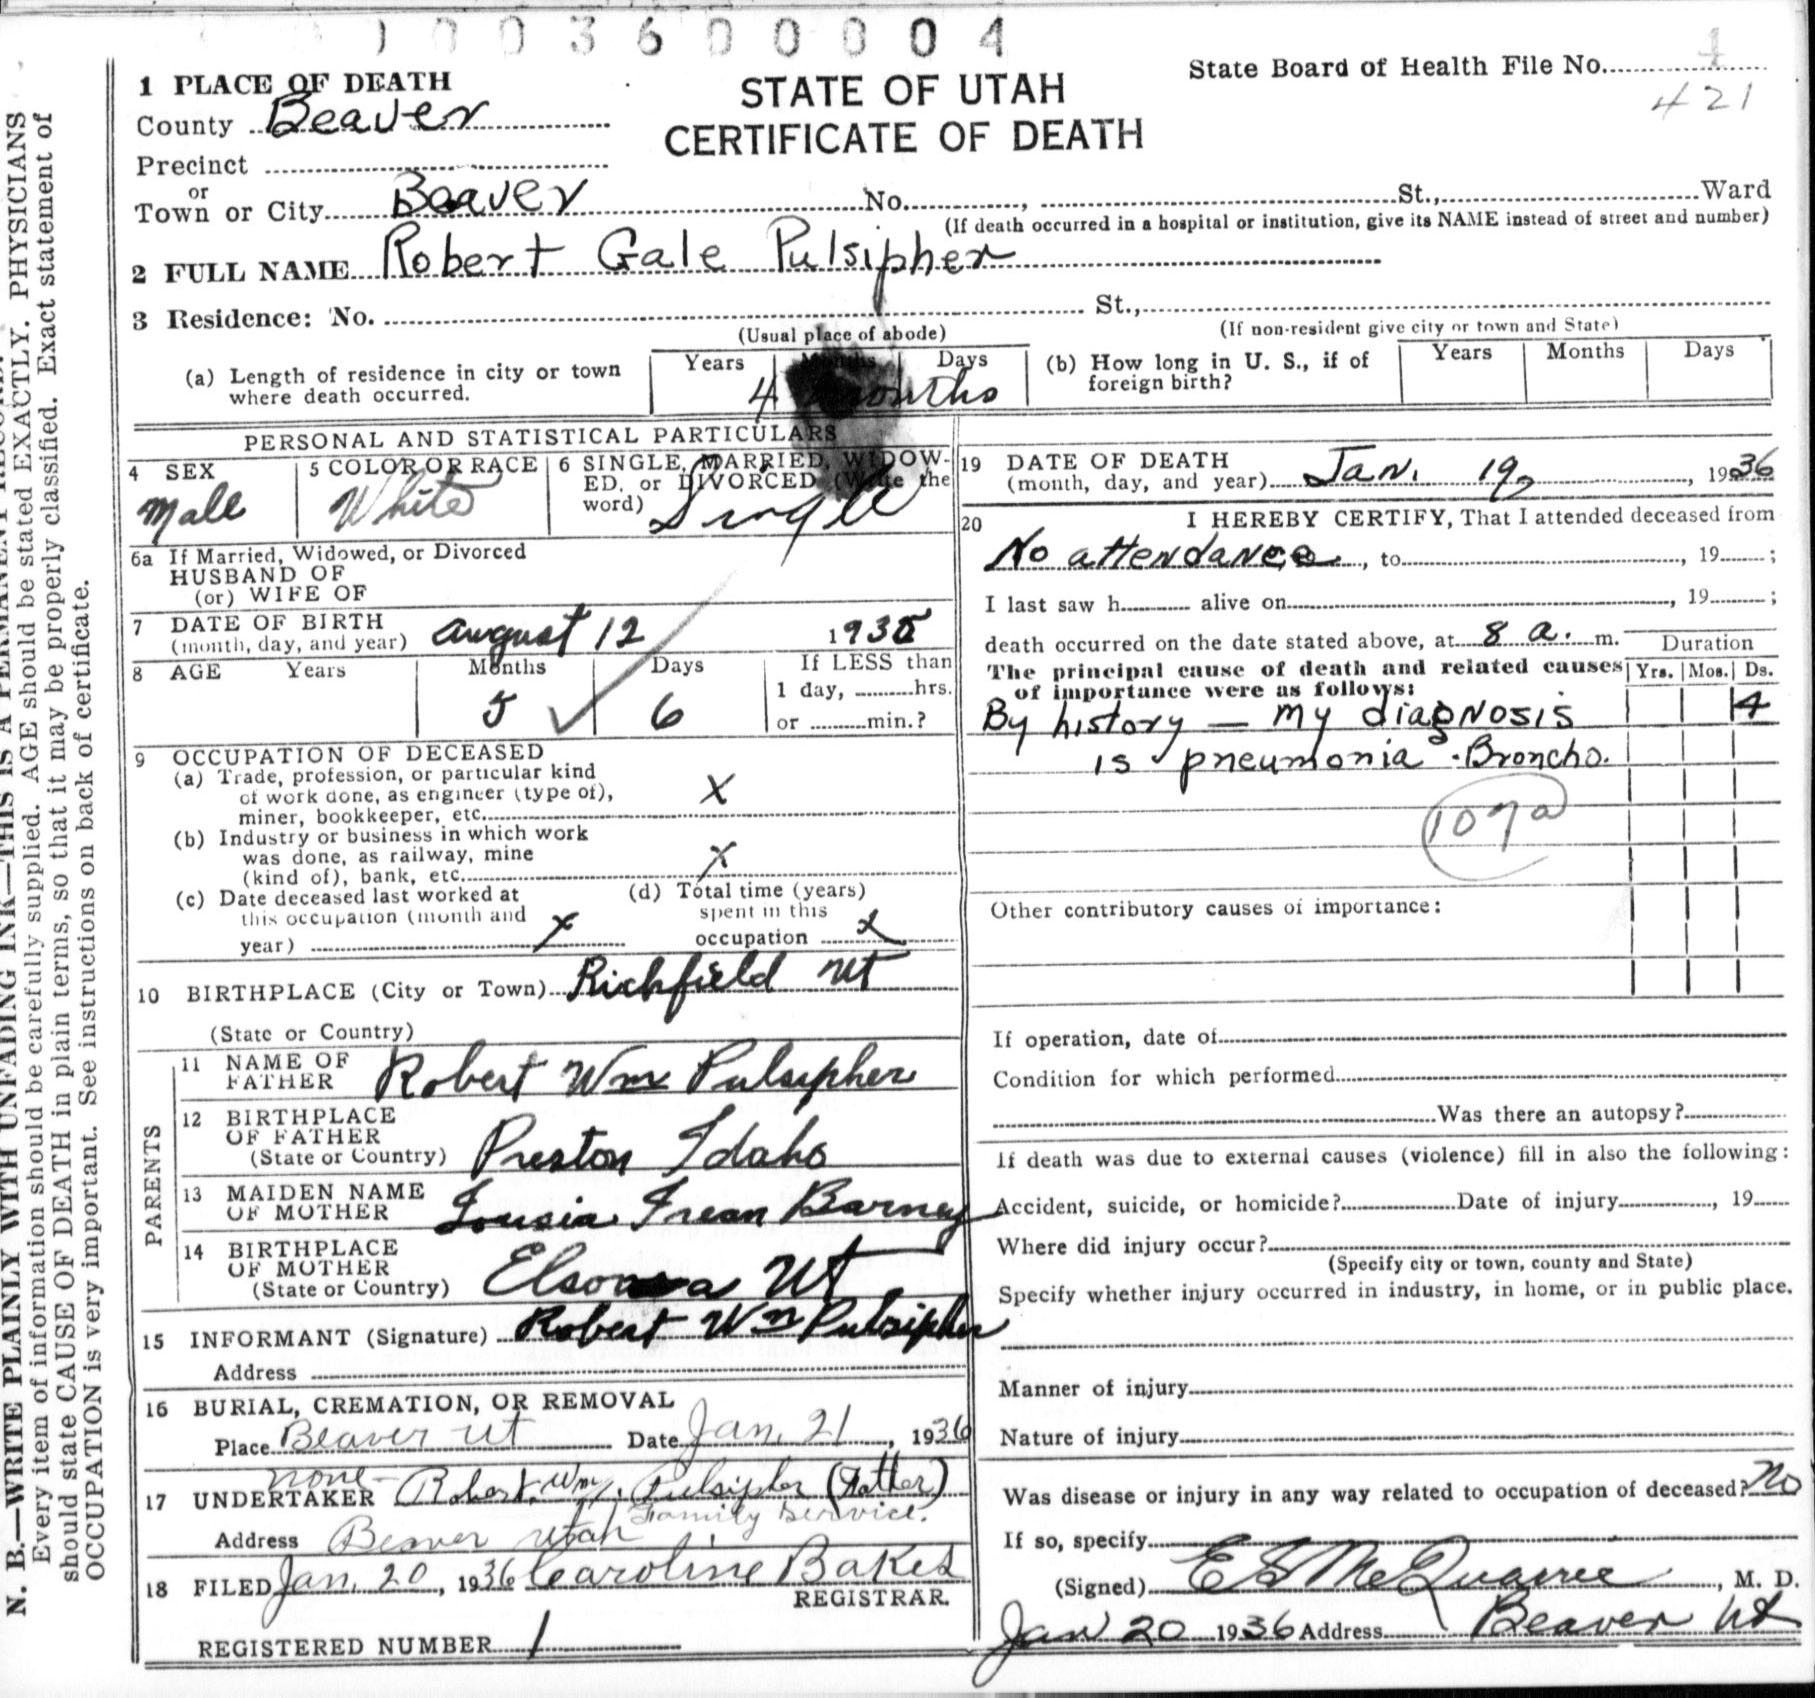 1 0 0 3 6 0 0 0 0 4
STATE OF UTAH
CERTIFICATE OF DEATH
State Board of Health File No. 4
421
1 PLACE OF DEATH
County Beaver
Precinct
or
Town or City Beaver No. , St., Ward
(If death occurred in a hospital or institution, give its NAME instead of street and number)
2 FULL NAME Robert Gale Pulsipher
3 Residence: No. St.,
(Usual place of abode) (If non-resident give city or town and State)
(a) Length of residence in city or town where death occurred. Years Months Days
4 months
(b) How long in U. S., if of foreign birth? Years Months Days
PERSONAL AND STATISTICAL PARTICULARS
4 SEX
Male
5 COLOR OR RACE
White
6 SINGLE, MARRIED, WIDOW-
ED, or DIVORCED (Write the
word) Single
6a If Married, Widowed, or Divorced
HUSBAND OF
(or) WIFE OF
7 DATE OF BIRTH
(month, day, and year) August 12 1935
8 AGE Years Months Days If LESS than
5 6 1 day, hrs.
or min.?
9 OCCUPATION OF DECEASED
(a) Trade, profession, or particular kind
of work done, as engineer (type of), X
miner, bookkeeper, etc.
(b) Industry or business in which work
was done, as railway, mine X
(kind of), bank, etc.
(c) Date deceased last worked at
this occupation (month and
year) X
(d) Total time (years)
spent in this
occupation X
10 BIRTHPLACE (City or Town) Richfield Ut
(State or Country)
PARENTS
11 NAME OF
FATHER Robert Wm Pulsipher
12 BIRTHPLACE
OF FATHER
(State or Country) Preston Idaho
13 MAIDEN NAME
OF MOTHER Lousia Barney
14 BIRTHPLACE
OF MOTHER
(State or Country) Ut
15 INFORMANT (Signature) Robert Wm Pulsipher
Address
16 BURIAL, CREMATION, OR REMOVAL
Place Beaver Ut Date Jan. 21, 1936
none-
17 UNDERTAKER Robert Wm. Pulsipher (Father)
Family Service.
Address Beaver Utah
18 FILED Jan. 20, 1936 Caroline
REGISTRAR.
REGISTERED NUMBER 1
19 DATE OF DEATH
(month, day, and year) Jan. 19, 1936
20 I HEREBY CERTIFY, That I attended deceased from
No attendance, to , 19 ;
I last saw h alive on , 19 ;
death occurred on the date stated above, at 8 a. m. Duration
The principal cause of death and related causes Yrs. Mos. Ds.
of importance were as follows:
By history — my diagnosis 4
is pneumonia - Broncho.
107a
Other contributory causes of importance:
If operation, date of
Condition for which performed
Was there an autopsy?
If death was due to external causes (violence) fill in also the following:
Accident, suicide, or homicide? Date of injury , 19
Where did injury occur?
(Specify city or town, county and State)
Specify whether injury occurred in industry, in home, or in public place.
Manner of injury
Nature of injury
Was disease or injury in any way related to occupation of deceased? No
If so, specify
(Signed) McQuarrie, M. D.
Jan 20 1936 Address Beaver Ut
N. B.—WRITE PLAINLY WITH UNFADING INK—THIS IS A PERMANENT RECORD.
Every item of information should be carefully supplied. AGE should be stated EXACTLY. PHYSICIANS
should state CAUSE OF DEATH in plain terms, so that it may be properly classified. Exact statement of
OCCUPATION is very important. See instructions on back of certificate.